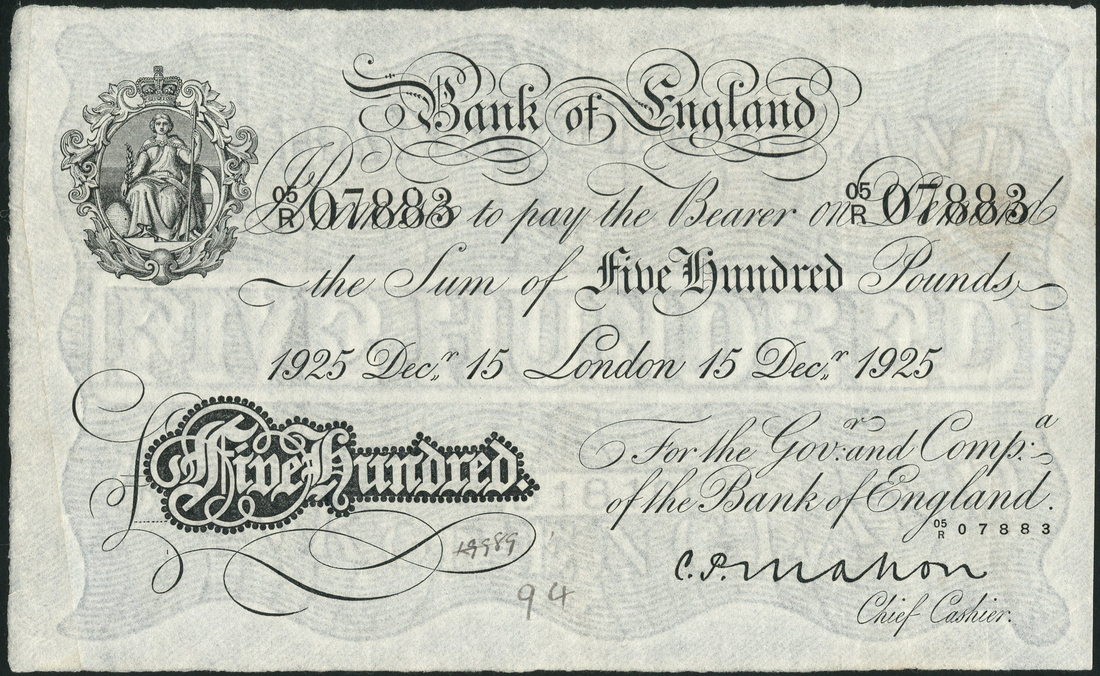 Bank of England
05/R 07883 05/R 07883
I Promise to pay the Bearer on Demand
the Sum of Five Hundred Pounds
1925 Decr 15 London 15 Decr 1925
For the Govr: and Compa:
£ Five Hundred.
of the Bank of England.
05/R 07883
C.P. Mahon
94
Chief Cashier.